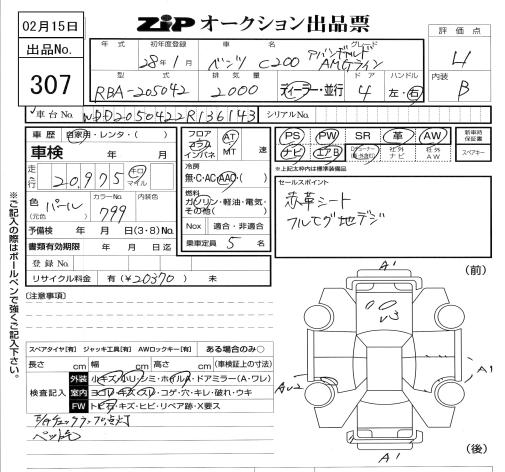 02月15日
ZiP オークション出品票
評価点
4
出品No.
307
年式 初年度登録 車名 グレード
28年1月 ベンツ C200 アバンギャルド
AMGライン
型式 排気量 ドア ハンドル
RBA-205042 2000 ディーラー・並行 4 左・右
内装
B
車台No. WDD2050422R136143 シリアルNo.
車歴 自家用・レンタ・( )
車検 年 月
走行 20,975 キロ マイル
色(元色) パール カラーNo. 799 内装色
予備検 年 月 日(3・8)No.
書類有効期限 年 月 日迄
登録No.
リサイクル料金 有(¥20370) 未
フロア コラム インパネ AT MT 速
冷房
無・C・AC・AAC・( )
燃料
ガソリン・軽油・電気・その他( )
Nox 適合・非適合
乗車定員 5 名
PS PW SR 革 AW 新車時保証書
ナビ エアB 社外ナビ 社外AW スペアキー
※上記太枠内は標準装備品
セールスポイント
赤革シート
フルセグ地デジ
※ご記入の際はボールペンで強くご記入下さい。
[注意事項]
スペアタイヤ[有] ジャッキ工具[有] AWロックキー[有] ある場合のみ○
長さ cm 幅 cm 高さ cm (車検証上の寸法)
検査記入
外装 小キズ・小リ・シミ・ホイルA・ドアミラー(A・ワレ)
室内 ヨゴレ・キズ・スレ・コゲ・穴・キレ・破れ・ウキ
FW トビ石・キズ・ヒビ・リペア跡・X要ス
ペットモ
(前)
A1
A1
A1
(後)